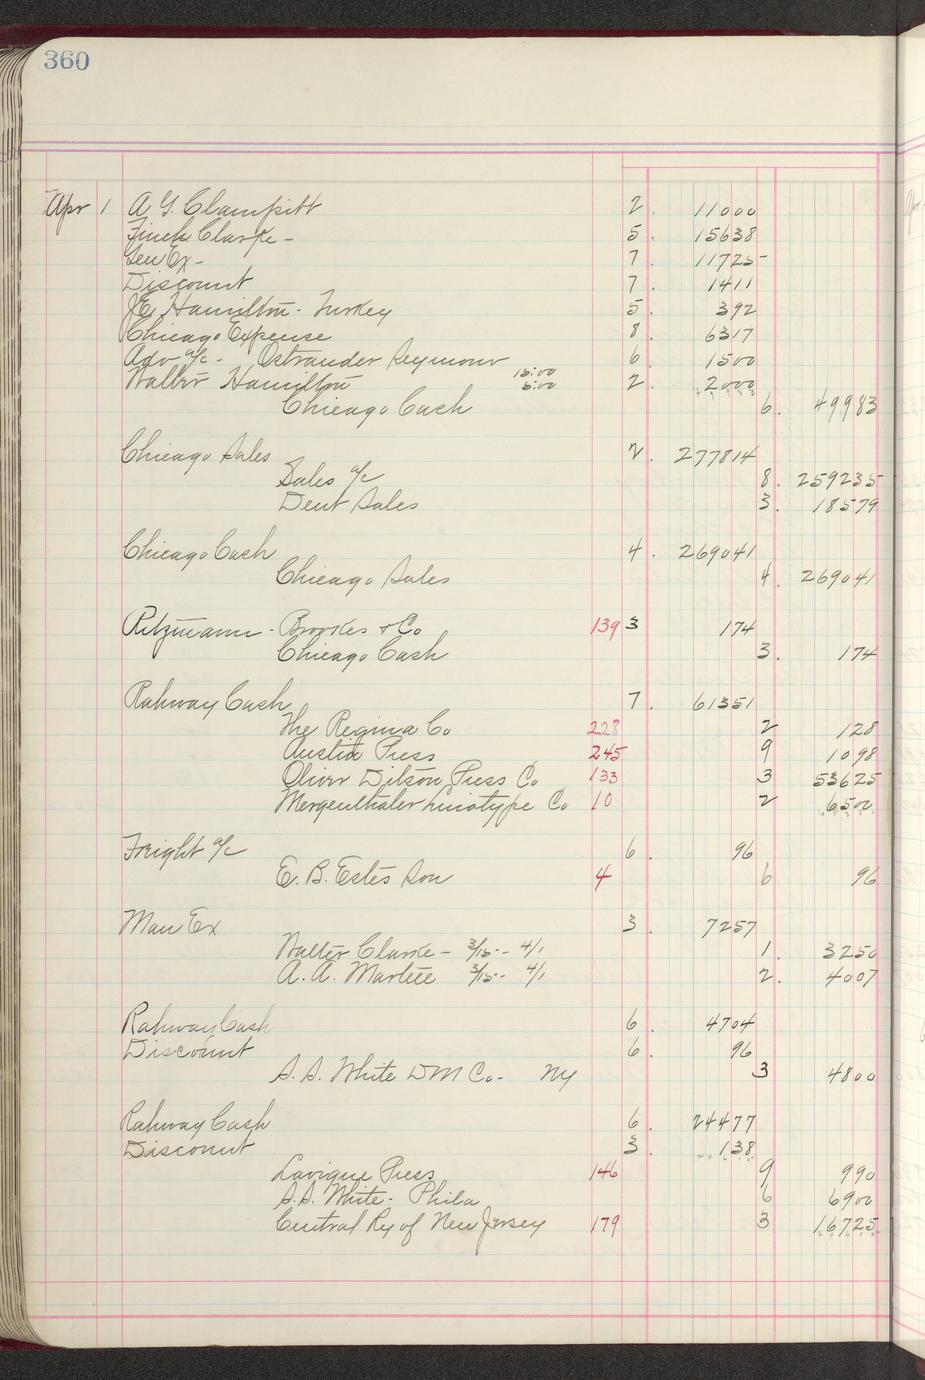 360
Apr 1 A G. Clampitt 2. 11000
Finch Clarke - 5. 15638
Gen Ex - 7. 11725-
Discount 7. 1411
J E Hamilton - Turkey 5. 392
Chicago Expense 8. 6317
Adv a/c - Ostrander Seymour 6. 1500
Walter Hamilton 15.00 5.00 2. 2000
Chicago Cash 6. 49983
Chicago Sales 2. 277814
Sales a/c 8. 259235
Dent Sales 3. 18579
Chicago Cash 4. 269041
Chicago Sales 4. 269041
Ritzmann - Brookes & Co 139 3 174
Chicago Cash 3. 174
Rahway Cash 7. 61351
The Regina Co 228 2 128
Austin Press 245 9 1098
Oliver Ditson Press Co 133 3 53625
Mergenthaler Linotype Co 10 2 6500
Freight a/c 6. 96
E. B. Estes Son 4 6 96
Man Ex 3. 7257
Walter Clarke - 3/15 - 4/1 1. 3250
A. A. 3/15 - 4/1 2. 4007
Rahway Cash 6. 4704
Discount 6. 96
S. S. White D M Co - NY 3 4800
Rahway Cash 6. 24477
Discount 3. 138
Lavigne Press 146 9 990
S. S. White - Phila 6 6900
Central Ry of New Jersey 179 3 16725